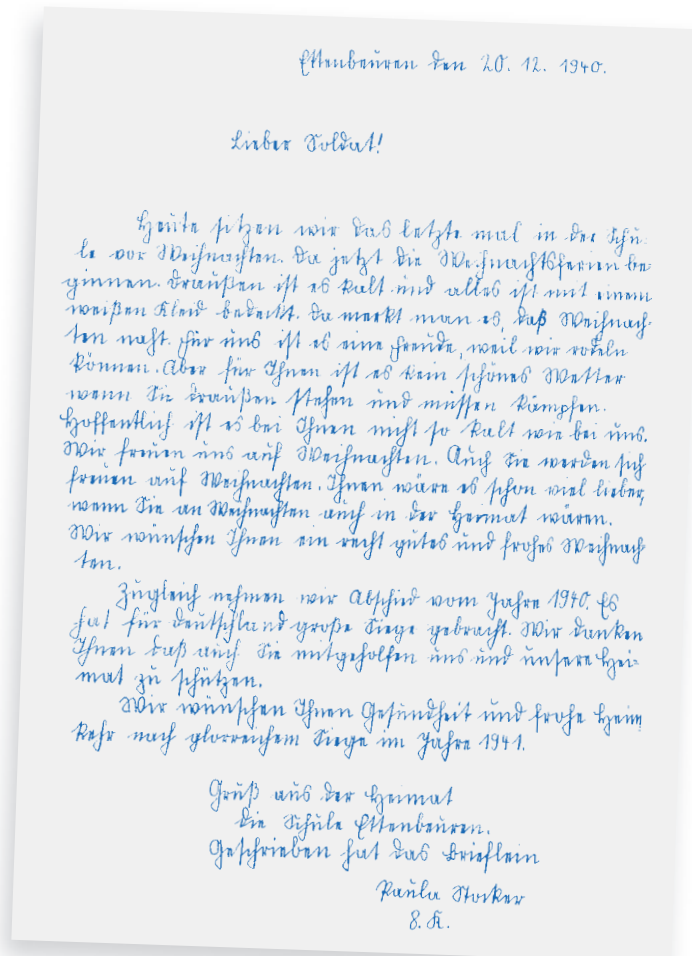 Ettenbeuren den 20. 12. 1940.
Lieber Soldat!
Heute sitzen wir das letzte mal in der Schu-
le vor Weihnachten. Da jetzt die Weihnachtsferien be-
ginnen. Draußen ist es kalt und alles ist mit einem
weißen Kleid bedeckt. Da merkt man es, daß Weihnach-
ten naht. Für uns ist es eine Freude, weil wir rodeln
können. Aber für Ihnen ist es kein schönes Wetter
wenn Sie draußen stehen und müssen kämpfen.
Hoffentlich ist es bei Ihnen nicht so kalt wie bei uns.
Wir freuen uns auf Weihnachten. Auch Sie werden sich
freuen auf Weihnachten. Ihnen wäre es schon viel lieber,
wenn Sie an Weihnachten auch in der Heimat wären.
Wir wünschen Ihnen ein recht gutes und frohes Weihnach-
ten.
Zugleich nehmen wir Abschied vom Jahre 1940. Es
hat für Deutschland große Siege gebracht. Wir danken
Ihnen daß auch Sie mitgeholfen uns und unsere Hei-
mat zu schützen.
Wir wünschen Ihnen Gesundheit und frohe Heim
kehr nach glorreichem Siege im Jahre 1941.
Gruß aus der Heimat
die Schule Ettenbeuren.
Geschrieben hat das Brieflein
Paula Stocker
8. K.